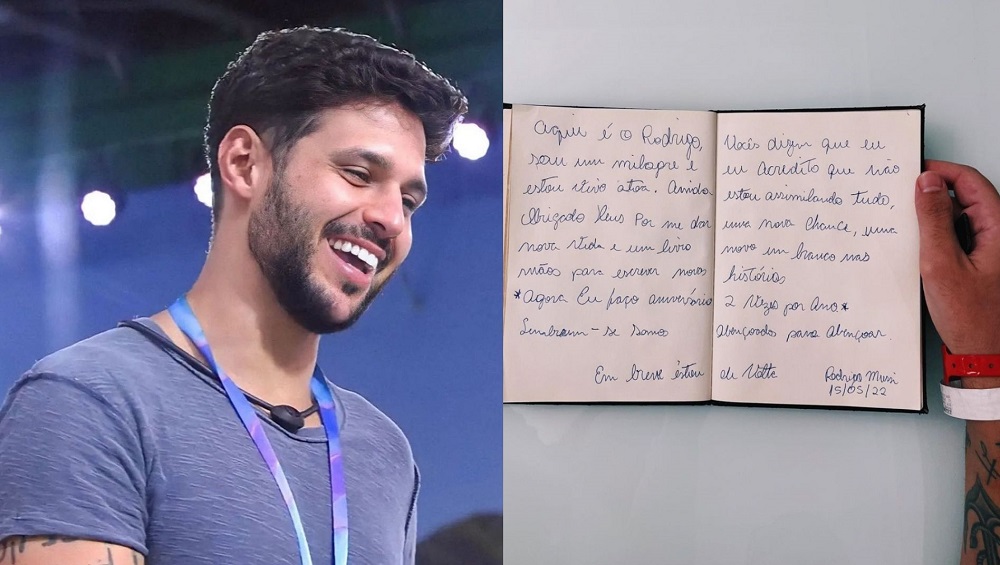 Aqui é o Rodrigo, Vocês dizem que eu
sou um milagre e eu Acredito que não
estou vivo atoa. Ainda estou assimilando tudo,
Obrigado Deus Por me dar uma nova Chance, uma
nova vida e um livro novo em branco nas
mãos para escrever novas histórias
*Agora Eu faço aniversário 2 Vezes por Ano*
Lembrem-se somos abençoados para abençoar.
Em breve estou de Volta Rodrigo Mussi
15/05/22